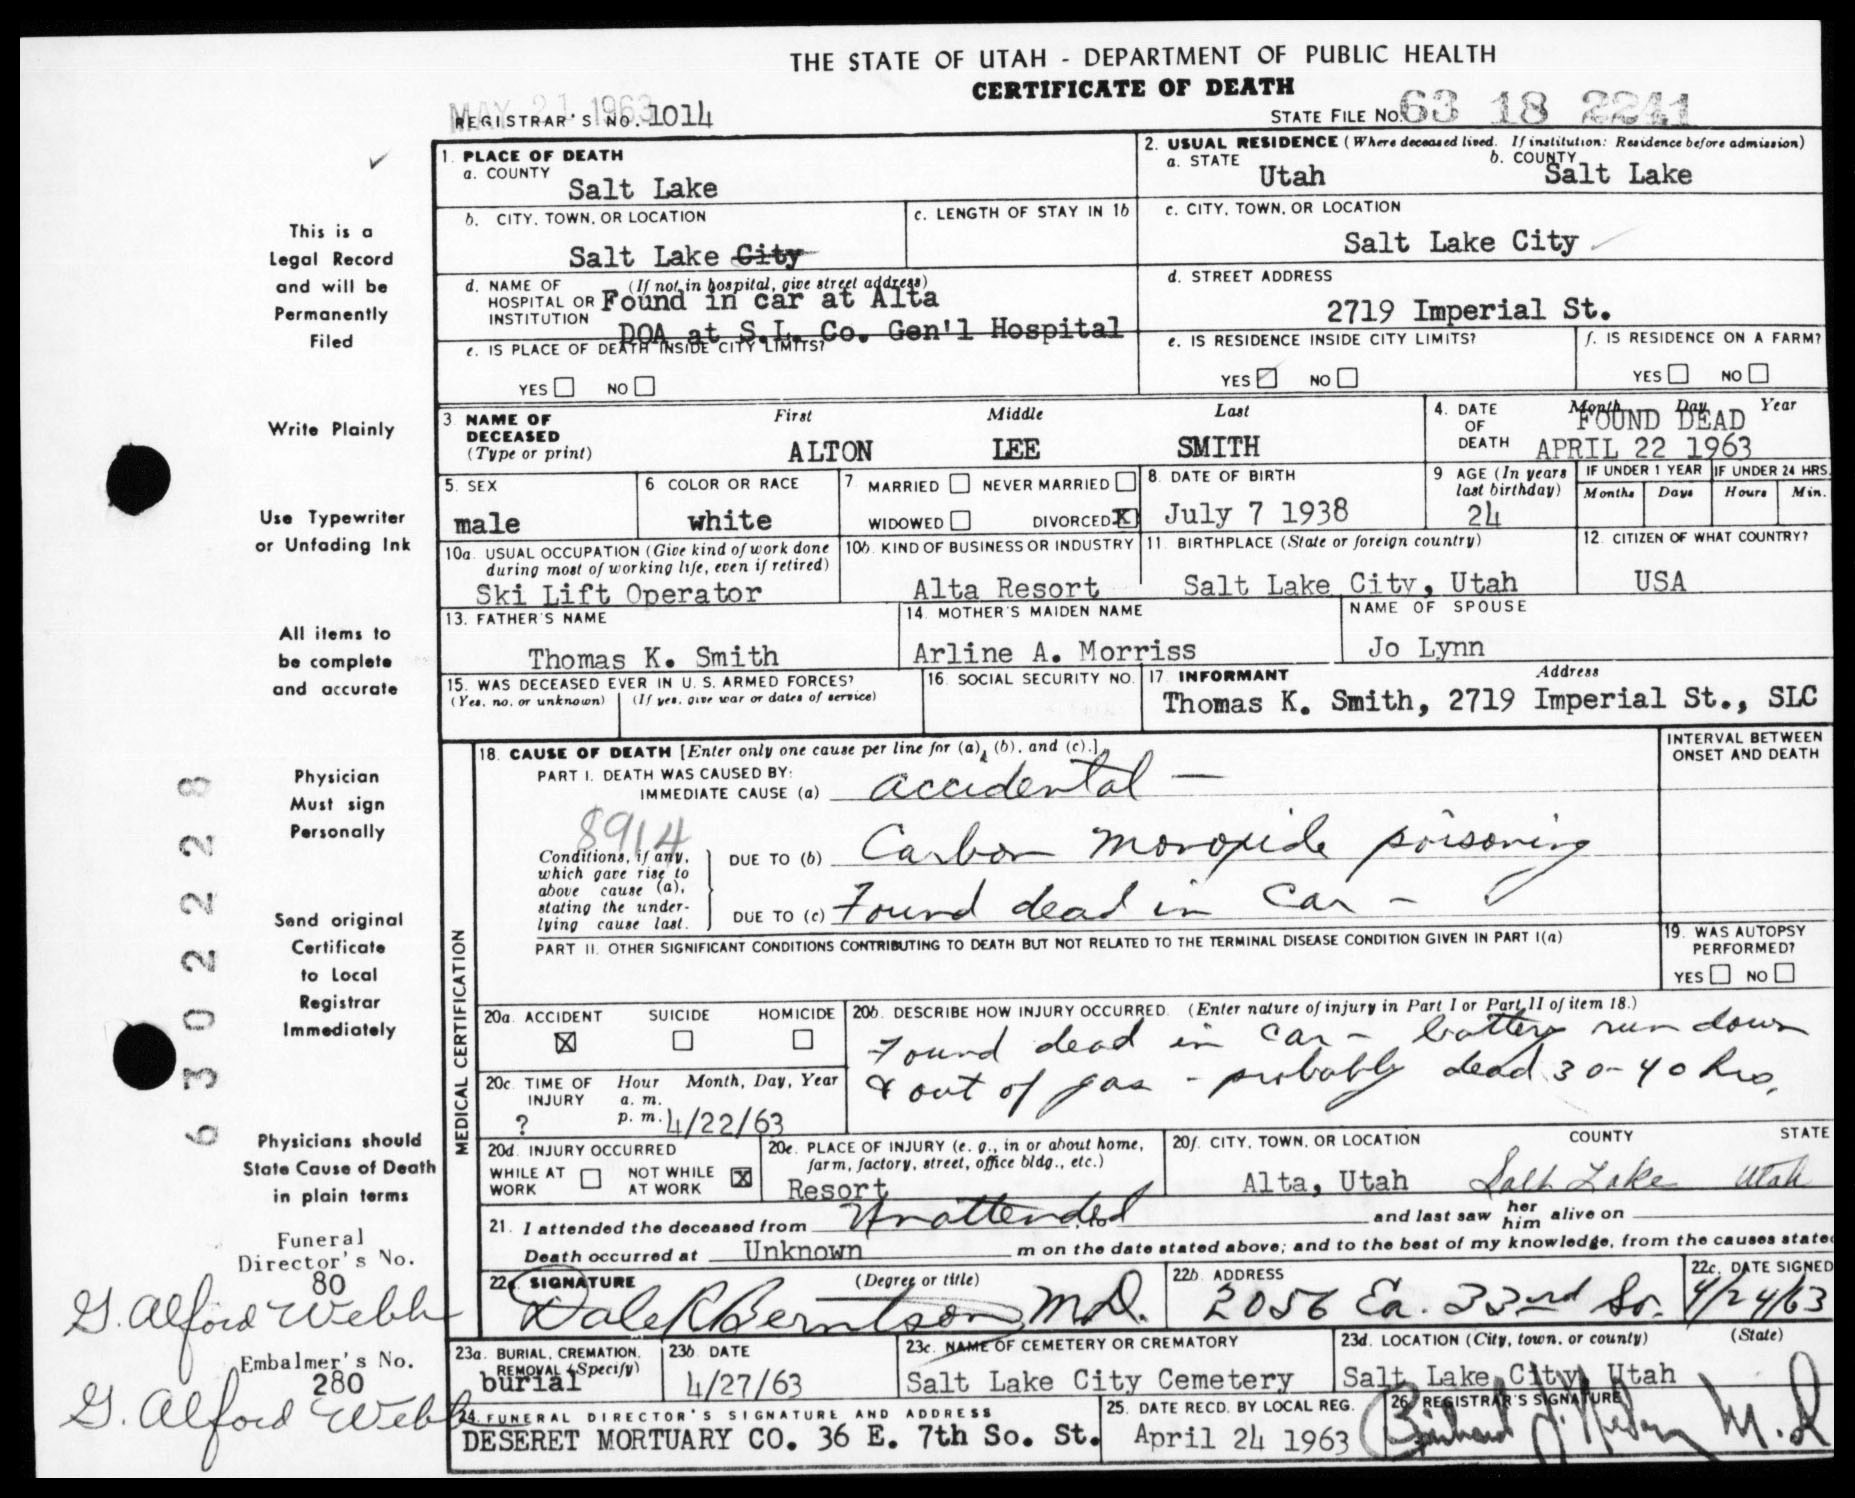 THE STATE OF UTAH - DEPARTMENT OF PUBLIC HEALTH
CERTIFICATE OF DEATH
MAY 21 1963
REGISTRAR'S NO. 1014
STATE FILE NO. 63 18 2241
1. PLACE OF DEATH
a. COUNTY
Salt Lake
2. USUAL RESIDENCE (Where deceased lived. If institution: Residence before admission)
a. STATE
Utah
b. COUNTY
Salt Lake
b. CITY, TOWN, OR LOCATION
Salt Lake City
c. LENGTH OF STAY IN 1b
c. CITY, TOWN, OR LOCATION
Salt Lake City
d. NAME OF HOSPITAL OR INSTITUTION
(If not in hospital, give street address)
Found in car at Alta
DOA at S.L. Co. Gen'l Hospital
d. STREET ADDRESS
2719 Imperial St.
e. IS PLACE OF DEATH INSIDE CITY LIMITS?
YES NO
e. IS RESIDENCE INSIDE CITY LIMITS?
YES NO
f. IS RESIDENCE ON A FARM?
YES NO
3. NAME OF DECEASED
(Type or print)
First Middle Last
ALTON LEE SMITH
4. DATE OF DEATH
Month Day Year
FOUND DEAD
APRIL 22 1963
5. SEX
male
6 COLOR OR RACE
white
7. MARRIED NEVER MARRIED
WIDOWED DIVORCED X
8. DATE OF BIRTH
July 7 1938
9 AGE (In years last birthday)
24
IF UNDER 1 YEAR
Months Days
IF UNDER 24 HRS.
Hours Min.
10a. USUAL OCCUPATION (Give kind of work done during most of working life, even if retired)
Ski Lift Operator
10b. KIND OF BUSINESS OR INDUSTRY
Alta Resort
11. BIRTHPLACE (State or foreign country)
Salt Lake City, Utah
12. CITIZEN OF WHAT COUNTRY?
USA
13. FATHER'S NAME
Thomas K. Smith
14. MOTHER'S MAIDEN NAME
Arline A. Morriss
NAME OF SPOUSE
Jo Lynn
15. WAS DECEASED EVER IN U. S. ARMED FORCES?
(Yes, no, or unknown) (If yes, give war or dates of service)
16. SOCIAL SECURITY NO.
17. INFORMANT Address
Thomas K. Smith, 2719 Imperial St., SLC
MEDICAL CERTIFICATION
18. CAUSE OF DEATH [Enter only one cause per line for (a), (b), and (c).]
PART I. DEATH WAS CAUSED BY:
IMMEDIATE CAUSE (a) accidental —
8914
Conditions, if any, which gave rise to above cause (a), stating the underlying cause last.
DUE TO (b) Carbon monoxide poisoning
DUE TO (c) Found dead in car -
INTERVAL BETWEEN ONSET AND DEATH
PART II. OTHER SIGNIFICANT CONDITIONS CONTRIBUTING TO DEATH BUT NOT RELATED TO THE TERMINAL DISEASE CONDITION GIVEN IN PART I(a)
19. WAS AUTOPSY PERFORMED?
YES NO
20a. ACCIDENT SUICIDE HOMICIDE
X
20b. DESCRIBE HOW INJURY OCCURRED. (Enter nature of injury in Part I or Part II of item 18.)
Found dead in car - battery run down
& out of gas - probably dead 30-40 hrs.
20c. TIME OF INJURY
Hour Month, Day, Year
a. m.
p. m.
? 4/22/63
20d. INJURY OCCURRED
WHILE AT WORK NOT WHILE AT WORK X
20e. PLACE OF INJURY (e. g., in or about home, farm, factory, street, office bldg., etc.)
Resort
20f. CITY, TOWN, OR LOCATION COUNTY STATE
Alta, Utah Salt Lake Utah
21. I attended the deceased from Unattended to and last saw her him alive on
Death occurred at Unknown m on the date stated above; and to the best of my knowledge, from the causes stated
22a. SIGNATURE (Degree or title)
Dale R Berntson M.D.
22b. ADDRESS
2056 Ea. 33rd So.
22c. DATE SIGNED
4/24/63
23a. BURIAL, CREMATION, REMOVAL (Specify)
burial
23b DATE
4/27/63
23c. NAME OF CEMETERY OR CREMATORY
Salt Lake City Cemetery
23d. LOCATION (City, town, or county) (State)
Salt Lake City, Utah
24. FUNERAL DIRECTOR'S SIGNATURE AND ADDRESS
DESERET MORTUARY CO. 36 E. 7th So. St.
25. DATE RECD. BY LOCAL REG.
April 24 1963
26. REGISTRAR'S SIGNATURE
M.D
This is a
Legal Record
and will be
Permanently
Filed
Write Plainly
Use Typewriter
or Unfading Ink
All items to
be complete
and accurate
Physician
Must sign
Personally
Send original
Certificate
to Local
Registrar
Immediately
Physicians should
State Cause of Death
in plain terms
6302228
Funeral
Director's No.
80
G. Alford Webb
Embalmer's No.
280
G. Alford Webb